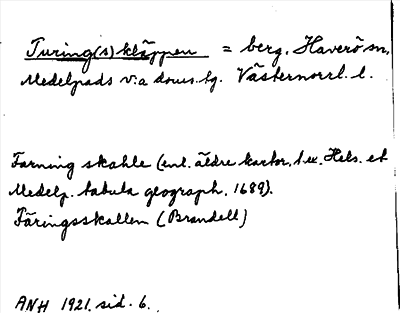 Turing(s)kläppen = berg, Haverö sn,
Medelpads v:a doms.tg. Västernorrl. l.
Farning skahle (enl. äldre kartor, t ex. Hels. et
Medelp. tabula geograph. 1689).
Färingsskallen (Brandell)
ANH 1921. sid. 6.